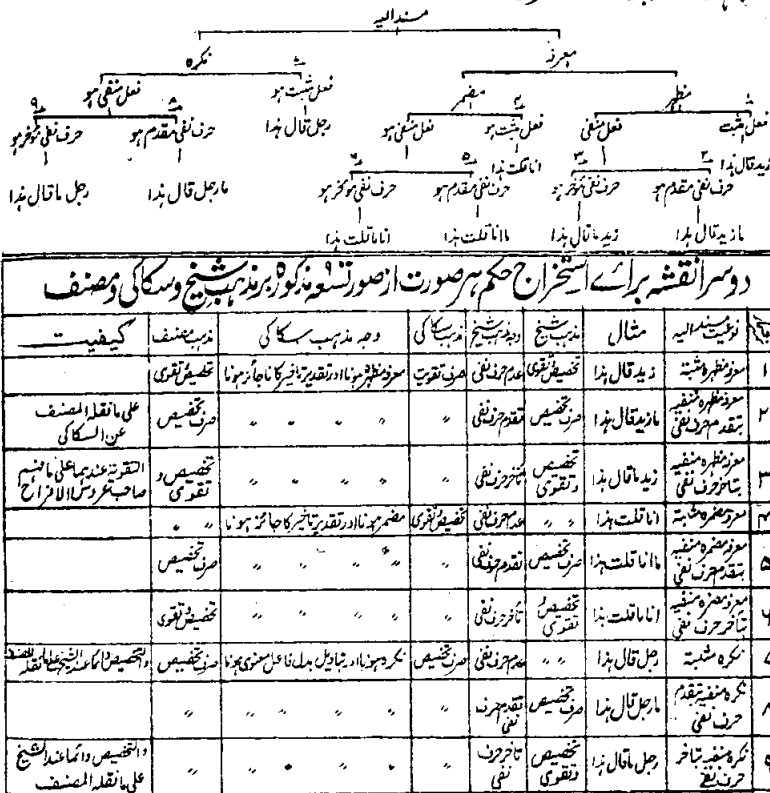 مسندالیہ
معرفہ
نکرہ
مظہر
مضمر
فعل مثبت ہو
فعل منفی ہو
فعل مثبت
فعل منفی
فعل مثبت ہو
فعل منفی ہو
رجل قال ہذا
حرف نفی مقدم ہو
حرف نفی مؤخر ہو
زید قال ہذا
انا قلت ہذا
مارجل قال ہذا
رجل ماقال ہذا
حرف نفی مقدم ہو
حرف نفی مؤخر ہو
حرف نفی مقدم ہو
حرف نفی مؤخر ہو
مازید قال ہذا
زید ماقال ہذا
ماانا قلت ہذا
انا ماقلت ہذا
دوسرا نقشہ برائے استخراج حکم ہر صورت از صور تسعہ مذکورہ بر مذہب شیخ و سکاکی و مصنف
نوعیت مسندالیہ مثال مذہب شیخ وجہ مذہب شیخ مذہب سکاکی وجہ مذہب سکاکی مذہب مصنف کیفیت
۱ معرفہ مظہرہ مثبتہ زید قال ہذا تخصیص و تقوی عدم حرف نفی صرف تقویت معرفہ مظہرہ ہونا اور تقدیر تاخیر کا ناجائز ہونا تخصیص و تقوی
۲ معرفہ مظہرہ منفیہ بتقدم حرف نفی مازید قال ہذا صرف تخصیص تقدم حرف نفی 〃 〃 〃 〃 〃 صرف تخصیص علی مانقلہ المصنف عن السکاکی
۳ معرفہ مظہرہ منفیہ بتاخر حرف نفی زید ماقال ہذا تخصیص و تقوی تاخر حرف نفی 〃 〃 〃 〃 〃 تخصیص و تقوی التقویۃ عندہما علی مافہم صاحب عروس الافراح
۴ معرفہ مضمرہ مثبتہ انا قلت ہذا 〃 〃 عدم حرف نفی تخصیص و تقوی مضمر ہونا اور تقدیر تاخیر کا جائز ہونا 〃 〃
۵ معرفہ مضمرہ منفیہ بتقدم حرف نفی ماانا قلت ہذا صرف تخصیص تقدم حرف نفی 〃 〃 〃 〃 〃 صرف تخصیص
۶ معرفہ مضمرہ منفیہ بتاخر حرف نفی انا ماقلت ہذا تخصیص و تقوی تاخر حرف نفی 〃 〃 〃 〃 〃 تخصیص و تقوی
۷ نکرہ مثبتہ رجل قال ہذا 〃 〃 عدم حرف نفی صرف تخصیص نکرہ ہونا اور بتاویل بدل فاعل معنوی ہونا صرف تخصیص والتخصیص دائما عند الشیخ علی مانقلہ
۸ نکرہ منفیہ بتقدم حرف نفی مارجل قال ہذا صرف تخصیص تقدم حرف نفی 〃 〃 〃 〃 〃 〃
۹ نکرہ منفیہ بتاخر حرف نفی رجل ماقال ہذا تخصیص و تقوی تاخر حرف نفی 〃 〃 〃 〃 〃 〃 والتخصیص دائما عند الشیخ علی مانقلہ المصنف